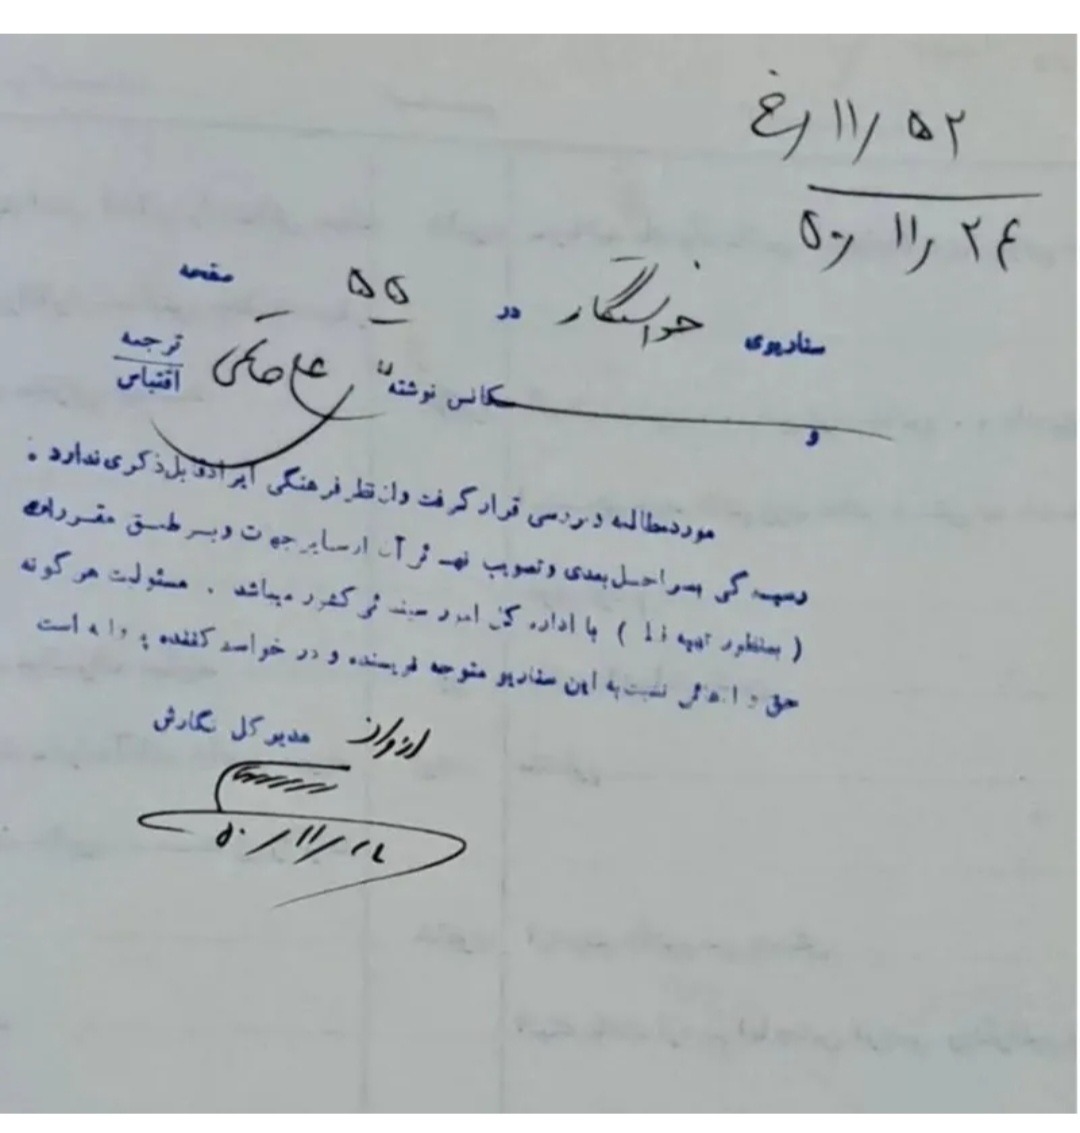 ۵۲ /۱۱/ خ
۲۴ /۱۱/ ۵۰
سناریوی خواستگار در ۵۵ صفحه
و سکانس نوشته علی حاتمی ترجمه
اقتباس
مورد مطالعه و بررسی قرار گرفت و از نظر فرهنگی ایراد قابل ذکری ندارد .
رسیدگی بمراحل بعدی و تصویب نهائی آن از سایر جهات و بر طبق مقررات
( بمنظور تهیه فیلم ) با اداره کل امور سینمائی کشور میباشد . مسئولیت هر گونه
حق و ادعائی نسبت به این سناریو متوجه نویسنده و درخواست کننده پروانه است
مدیر کل نگارش
۵۰/۱۱/